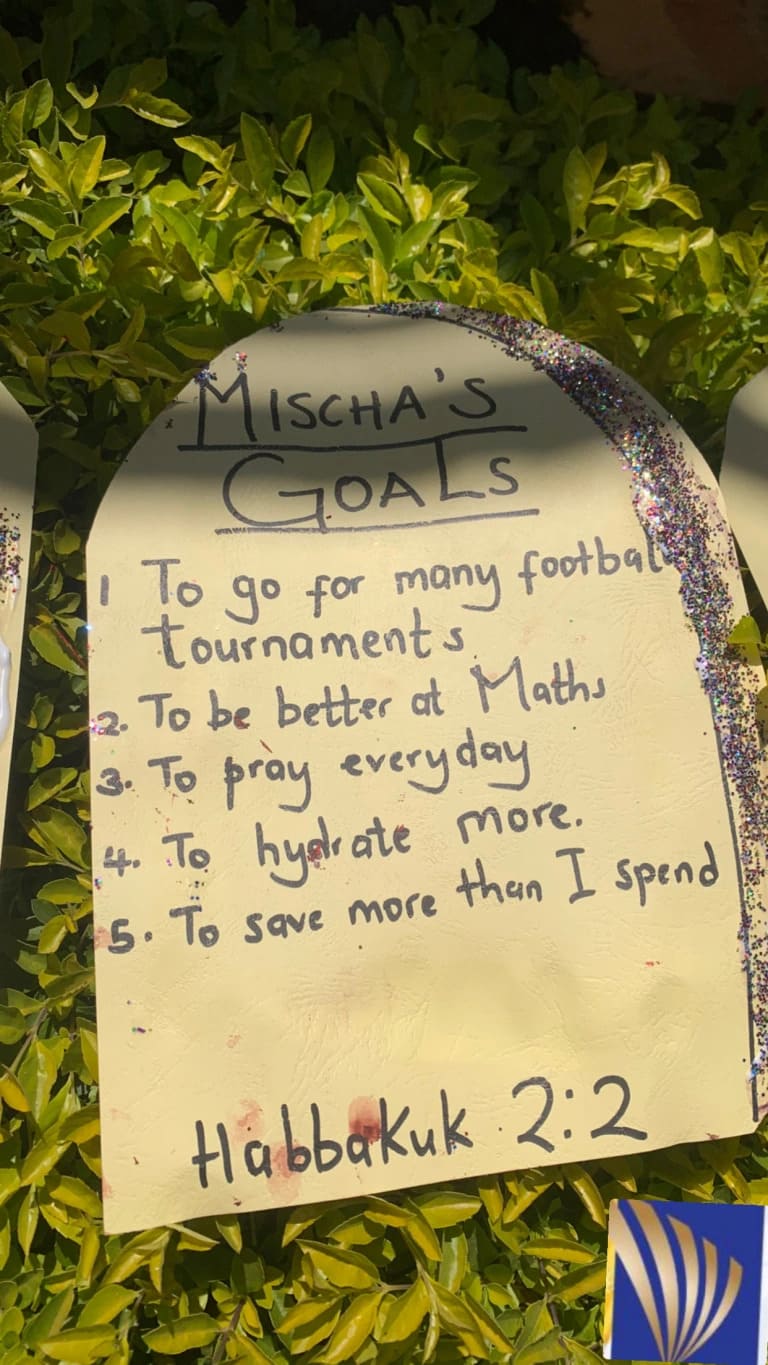 MISCHA'S
GOALS
1 To go for many football
tournaments
2. To be better at Maths
3. To pray everyday
4. To hydrate more.
5. To save more than I spend
Habbakuk 2:2